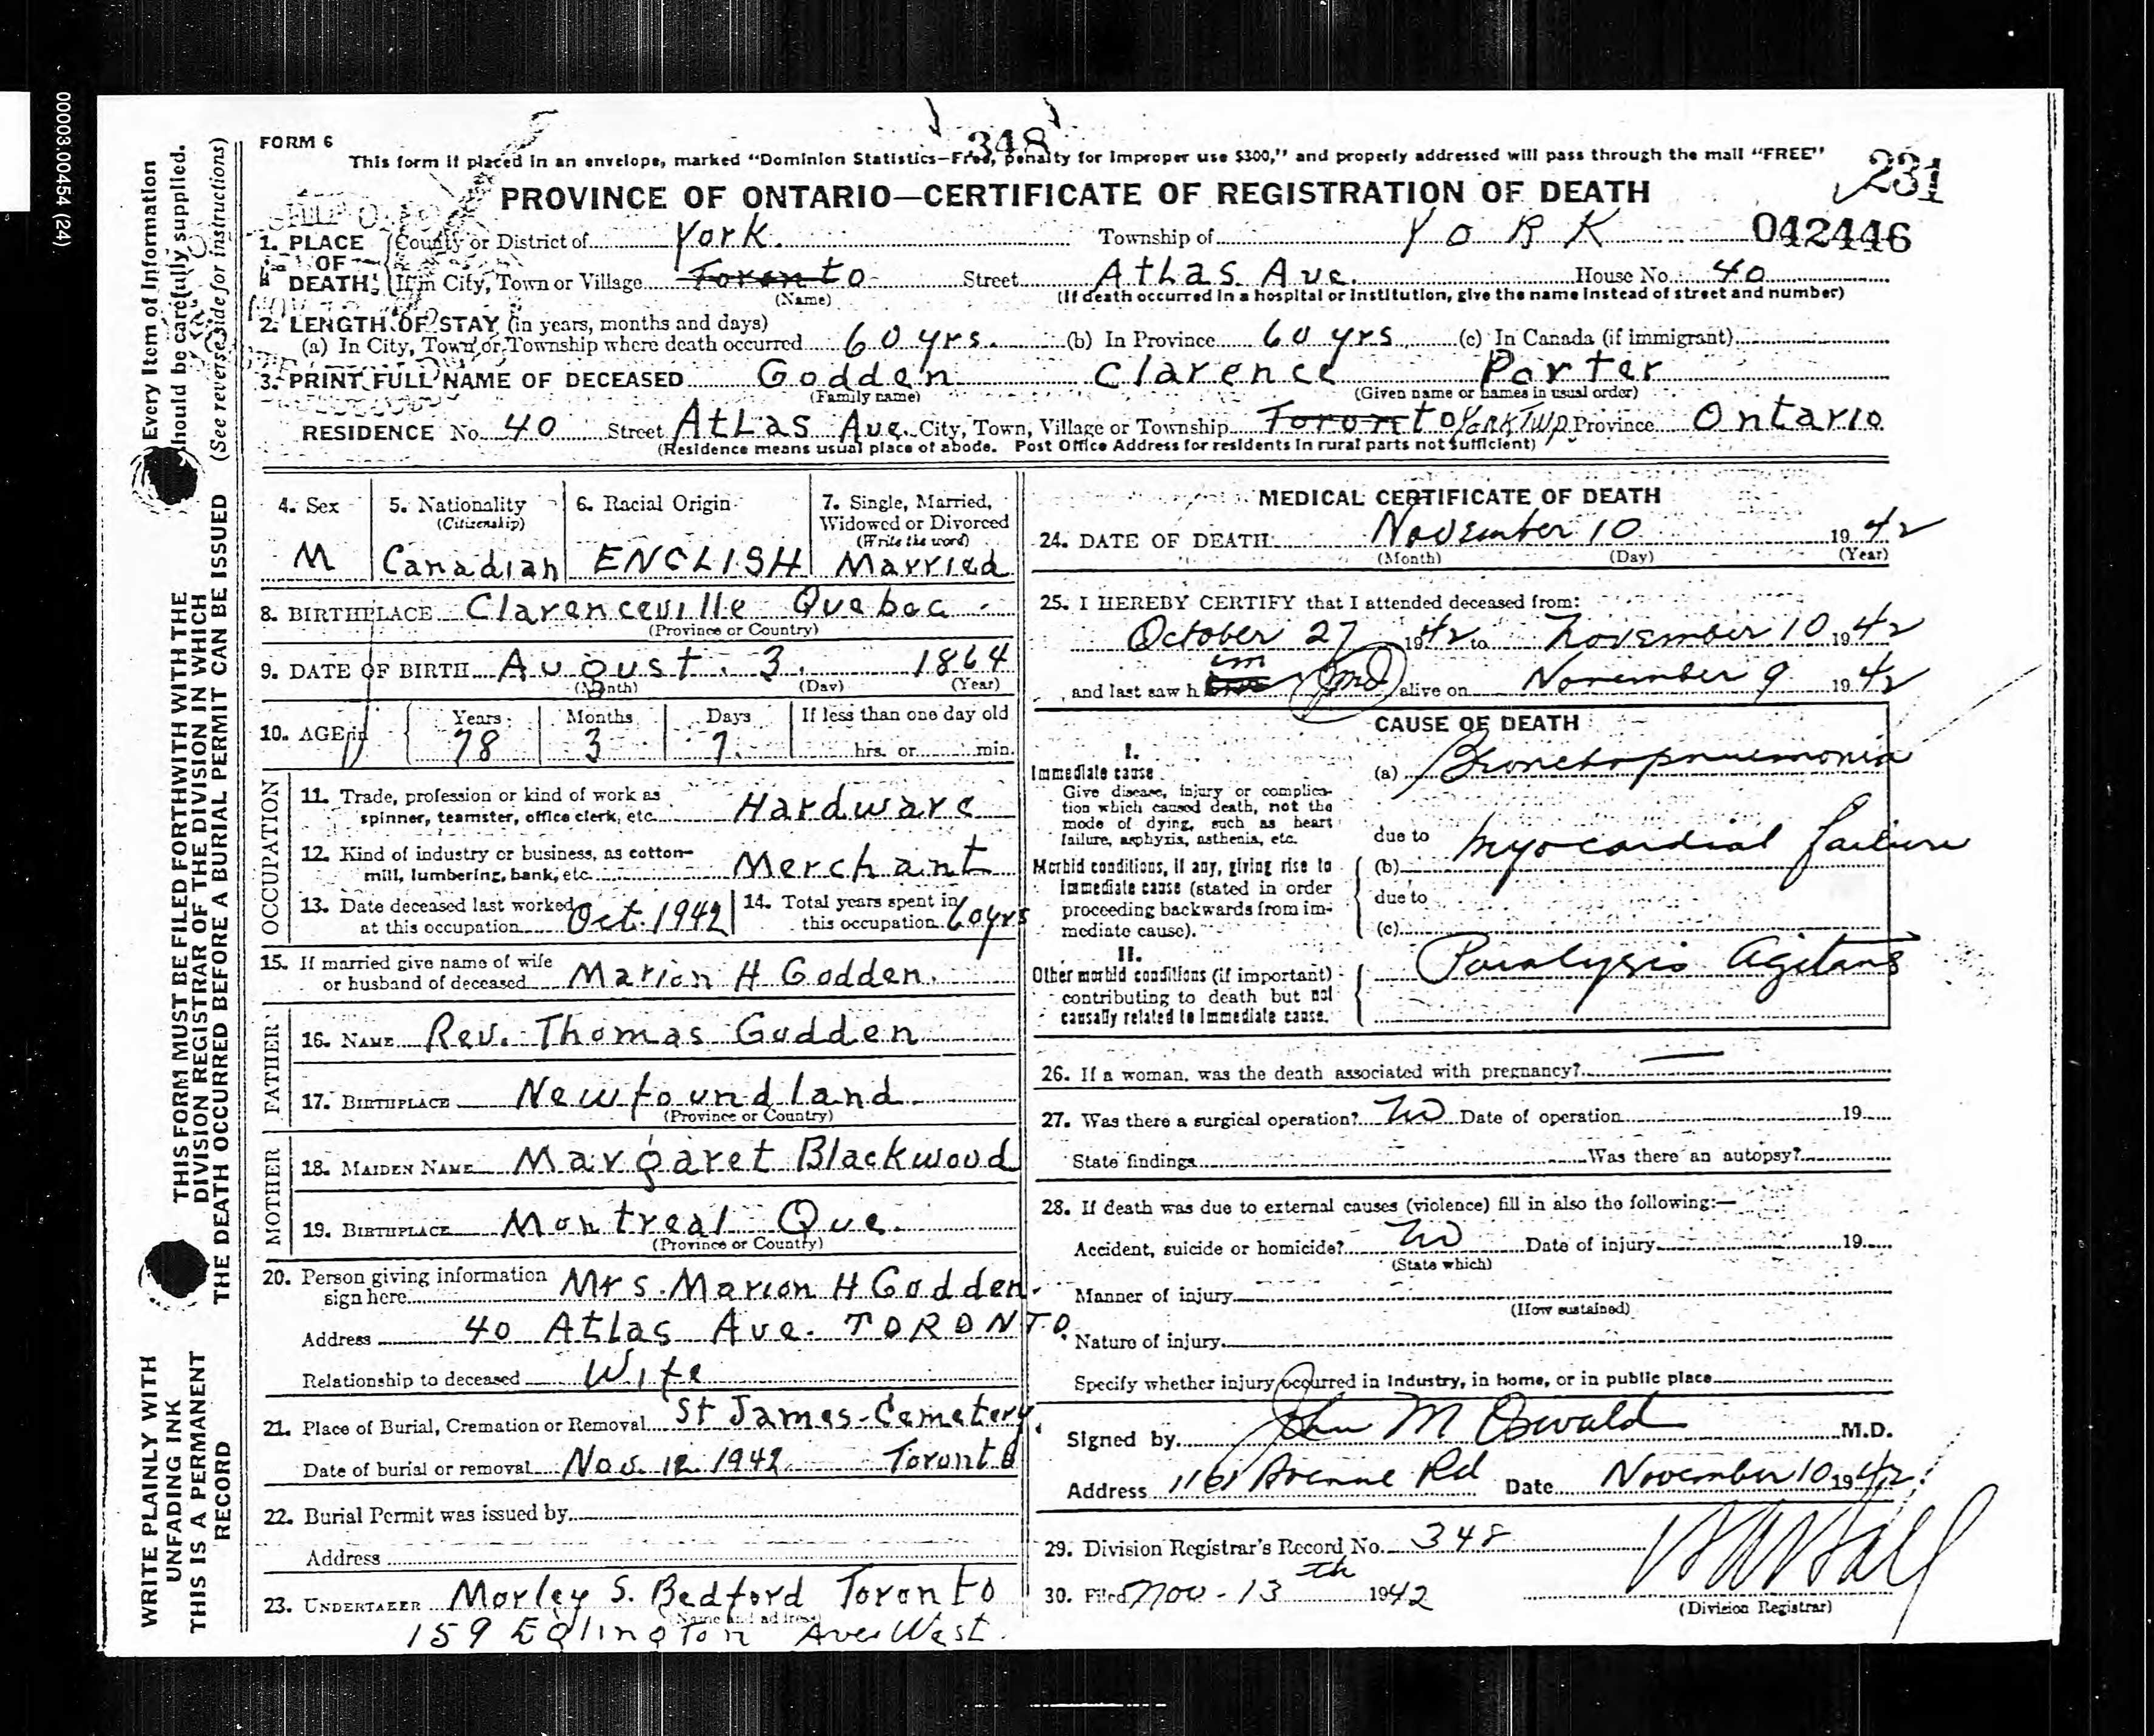 00003.00454 (24)
FORM 6
348
This form if placed in an envelope, marked "Dominion Statistics—Free, penalty for improper use $300," and properly addressed will pass through the mail "FREE"
231
PROVINCE OF ONTARIO—CERTIFICATE OF REGISTRATION OF DEATH
042446
1. PLACE OF DEATH: County or District of York Township of YORK
If in City, Town or Village Toronto Street Atlas Ave. House No. 40
(Name) (If death occurred in a hospital or institution, give the name instead of street and number)
2. LENGTH OF STAY (in years, months and days)
(a) In City, Town or Township where death occurred 60 yrs. (b) In Province 60 yrs (c) In Canada (if immigrant)
3. PRINT FULL NAME OF DECEASED Godden Clarence Porter
(Family name) (Given name or names in usual order)
RESIDENCE No. 40 Street Atlas Ave. City, Town, Village or Township Toronto York Twp Province Ontario
(Residence means usual place of abode. Post Office Address for residents in rural parts not sufficient)
4. Sex 5. Nationality 6. Racial Origin 7. Single, Married,
(Citizenship) Widowed or Divorced
(Write the word)
M Canadian ENGLISH Married
8. BIRTHPLACE Clarenceville Quebec
(Province or Country)
9. DATE OF BIRTH August 3 1864
(Month) (Day) (Year)
10. AGE in Years Months Days If less than one day old
78 3 7 hrs. or min.
OCCUPATION
11. Trade, profession or kind of work as
spinner, teamster, office clerk, etc. Hardware
12. Kind of industry or business, as cotton-
mill, lumbering, bank, etc. Merchant
13. Date deceased last worked 14. Total years spent in
at this occupation Oct. 1942 this occupation 60 yrs
15. If married give name of wife
or husband of deceased Marion H Godden.
FATHER
16. NAME Rev. Thomas Godden
17. BIRTHPLACE Newfoundland
(Province or Country)
MOTHER
18. MAIDEN NAME Margaret Blackwood
19. BIRTHPLACE Montreal Que.
(Province or Country)
20. Person giving information
sign here Mrs. Marion H Godden
Address 40 Atlas Ave. TORONTO
Relationship to deceased Wife
21. Place of Burial, Cremation or Removal St James-Cemetery
Date of burial or removal Nov. 12. 1942 Toronto
22. Burial Permit was issued by
Address
23. UNDERTAKER Morley S. Bedford Toronto
(Name and address)
159 Eglington Ave West.
MEDICAL CERTIFICATE OF DEATH
24. DATE OF DEATH November 10 1942
(Month) (Day) (Year)
25. I HEREBY CERTIFY that I attended deceased from:
October 27 1942 to November 10 1942
and last saw h im alive on November 9 1942
CAUSE OF DEATH
I.
Immediate cause (a) Bronchopneumonia
Give disease, injury or complica-
tion which caused death, not the
mode of dying, such as heart
failure, asphyxia, asthenia, etc. due to Myocardial failure
Morbid conditions, if any, giving rise to (b)
immediate cause (stated in order
proceeding backwards from im- due to
mediate cause). (c)
II.
Other morbid conditions (if important) Paralysis Agitans
contributing to death but not
causally related to immediate cause.
26. If a woman, was the death associated with pregnancy? —
27. Was there a surgical operation? No Date of operation 19
State findings Was there an autopsy?
28. If death was due to external causes (violence) fill in also the following:—
Accident, suicide or homicide? No Date of injury 19
(State which)
Manner of injury
(How sustained)
Nature of injury
Specify whether injury occurred in industry, in home, or in public place
Signed by John M Oswald M.D.
Address 1161 Avenue Rd Date November 10 1942
29. Division Registrar's Record No. 348
30. Filed Nov - 13th 1942
(Division Registrar)
Every Item of Information
should be carefully supplied.
(See reverse side for instructions)
THIS FORM MUST BE FILED FORTHWITH WITH THE
DIVISION REGISTRAR OF THE DIVISION IN WHICH
THE DEATH OCCURRED BEFORE A BURIAL PERMIT CAN BE ISSUED
WRITE PLAINLY WITH
UNFADING INK
THIS IS A PERMANENT
RECORD